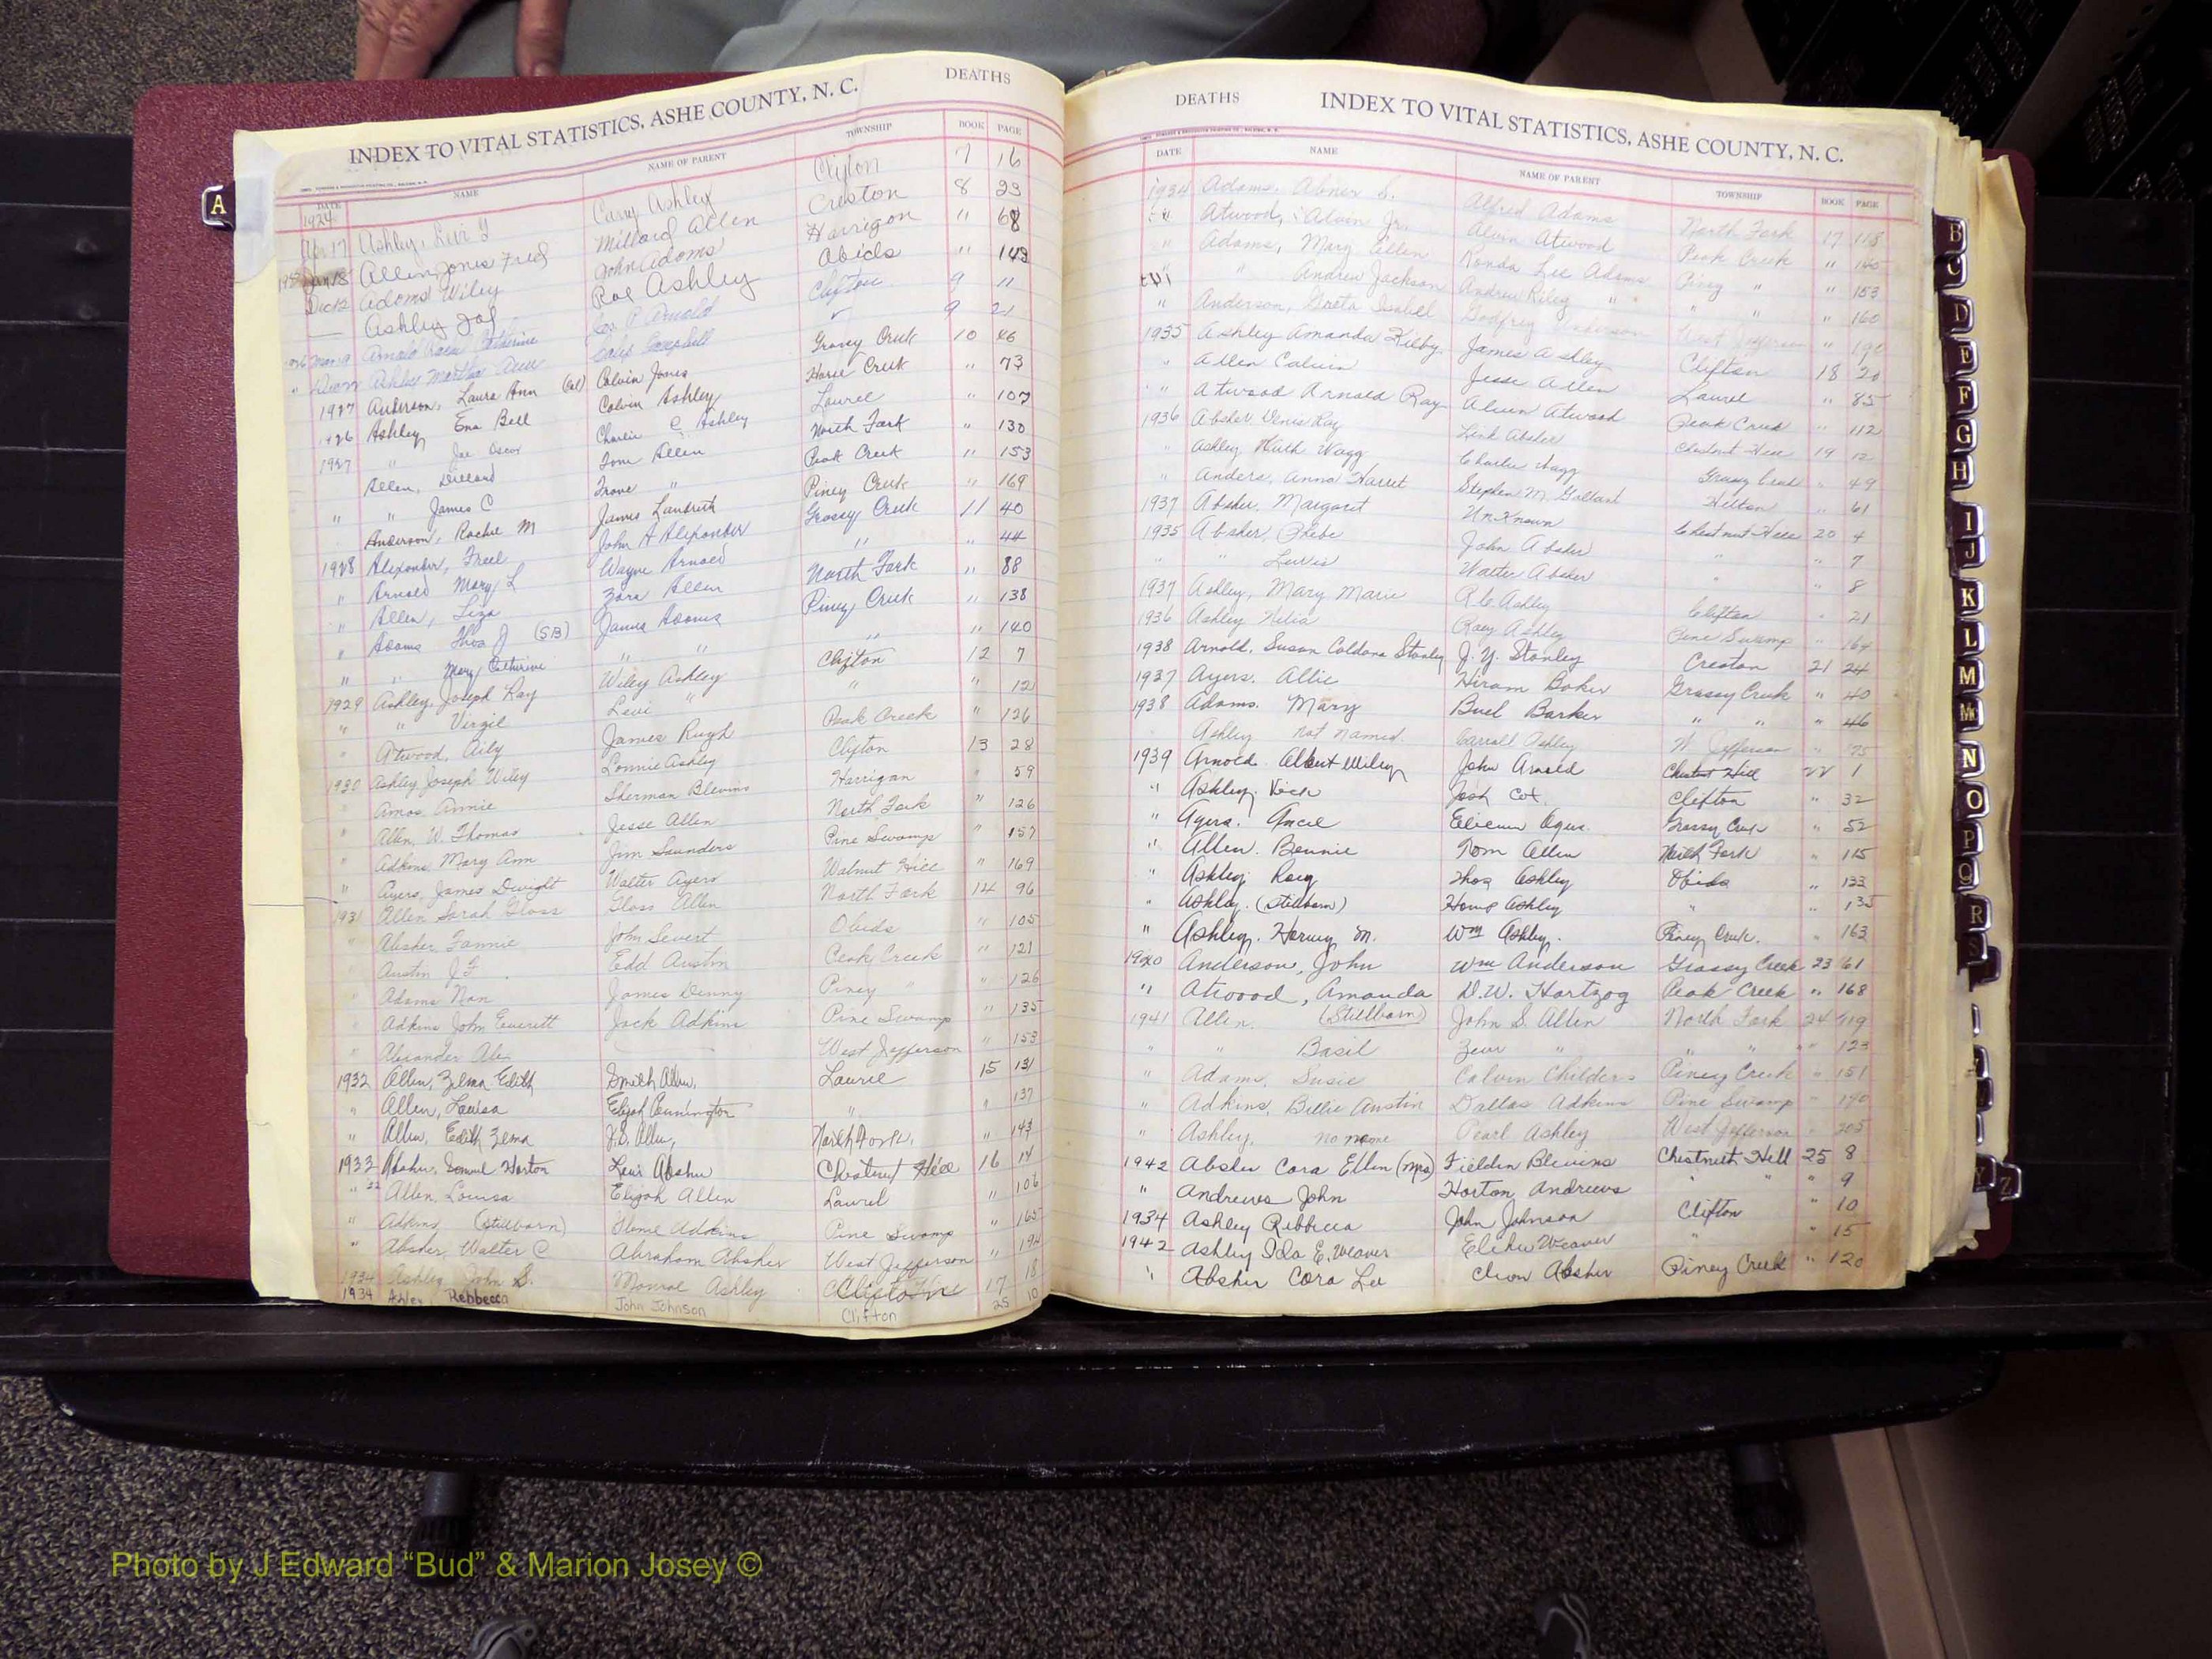 DEATHS
INDEX TO VITAL STATISTICS, ASHE COUNTY, N. C.
DATE NAME NAME OF PARENT TOWNSHIP BOOK PAGE
1924
Apr 17 Ashley, Levi Carry Ashley Clifton 7 16
Allen Jones Fred Millard Allen Creston 8 23
Dec 12 Adams Wiley John Adams Harrigan " 68
Ashley Joe Roe Ashley Obids " 143
Arnold Catherine Arnold Clifton 9 11
Ashley Martha Ann Campbell 9 21
1927 Anderson, Laura Ann (Col) Calvin Jones Grassy Creek 10 46
1926 Ashley Ena Bell Calvin Ashley Horse Creek " 73
1927 " Joe Oscar Charlie C Ashley Laurel " 107
Allen, Dillard Tom Allen North Fork " 130
" " James C Trove " Peak Creek " 153
Anderson, Rachel M James Landreth Piney Creek " 169
1928 Alexander, Freel John A Alexander Grassy Creek 11 40
" Arnold Mary L Wayne Arnold " " 44
" Allen, Liza Zora Allen North Fork " 88
" Adams Thos J (SB) James Adams Piney Creek " 138
" " Mary Catherine " " " " 140
1929 Ashley, Joseph Ray Wiley Ashley Clifton 12 7
" " Virgil Levi " " " 12
" Atwood, Aily James Rugh Peak Creek " 126
1930 Ashley Joseph Wiley Lonnie Ashley Clifton 13 28
Amos Annie Sherman Blevins Harrigan " 59
" Allen, W. Thomas Jesse Allen North Fork " 126
" Adkins Mary Ann Jim Saunders Pine Swamp " 157
" Ayers, James Dwight Walter Ayers Walnut Hill " 169
1931 Allen Sarah Gloss Gloss Allen North Fork 14 96
" Absher Fannie John Severt Obids " 105
" Austin J F Edd Austin Peak Creek " 121
" Adams Nan James Denny Piney " " 126
" Adkins John Everitt Jack Adkins Pine Swamp " 135
" Alexander Alex West Jefferson " 153
1932 Allen, Zelma Edith Smith Allen, Laurel 15 131
" Allen, Louisa Elijah Pennington " " 137
" Allen, Edith Zelma J.S. Allen, North Fork, " 143
1933 Absher, Samuel Horton Levi Absher Chestnut Hill 16 14
" 32 Allen, Louisa Elijah Allen Laurel " 106
" Adkins (Stillborn) Adkins Pine Swamp " 165
" Absher, Walter C Abraham Absher West Jefferson " 194
1934 Ashley John S. Monroe Ashley 17 18
1934 Ashley Rebbecca John Johnson Clifton 25 10
DEATHS
INDEX TO VITAL STATISTICS, ASHE COUNTY, N. C.
DATE NAME NAME OF PARENT TOWNSHIP BOOK PAGE
1934 Adams, Abner S. Alfred Adams North Fork 17 118
" Atwood, Alvin Jr. Alvin Atwood Peak Creek "
" Adams, Mary Ellen Ronda Lee Adams Piney " " 153
" Andrew Jackson Andrew Riley " " " " 160
" Anderson, Greta Isabel Godfrey Anderson West Jefferson "
1935 Ashley Amanda Kilby James Ashley Clifton 18 20
" Allen Calvin Jesse Allen Laurel " 85
" Atwood Arnold Ray Alvin Atwood Peak Creek " 112
1936 Absher Denis Ray Link Absher Chestnut Hill 19 12
" Ashley Ruth Wagg Charlie Wagg Grassy Creek " 49
" Anders, Anna Harret Stephen M. Helton " 61
1937 Absher, Margaret Unknown Chestnut Hill 20 4
1935 Absher, Phebe John Absher " " 7
" Lewis Walter Absher " " 8
1937 Ashley, Mary Marie R.C. Ashley Clifton " 21
1936 Ashley Nelia Roey Ashley Pine Swamp " 164
1938 Arnold, Susan Caldona Stanley J. Y. Stanley Creston 21 24
1937 Ayers, Allie Hiram Baker Grassy Creek " 40
1938 Adams, Mary Buel Barker " " " 46
Ashley not named Carroll Ashley W. Jefferson " 75
1939 Arnold Albert Wiley John Arnold Chestnut Hill 22 1
" Ashley, Vick Josh Cox. Clifton " 32
" Ayers, Ancel Grassy Creek " 52
" Allen, Bennie Tom Allen North Fork " 115
" Ashley, Roey Thos Ashley Obids " 133
" Ashley, (Stillborn) Hamp Ashley " " 135
" Ashley, Harvey M. Wm Ashley. Piney Creek. " 163
1940 Anderson, John Wm Anderson Grassy Creek 23 61
" Atwood, Amanda D.W. Hartzog Peak Creek " 168
1941 Allen, (Stillborn) John S. Allen North Fork 24 119
" " Basil " " " " 123
" Adams, Susie Calvin Childers Piney Creek " 151
" Adkins, Billie Austin Dallas Adkins Pine Swamp " 190
" Ashley, no name Pearl Ashley West Jefferson " 205
1942 Absher Cora Ellen (Mrs) Fielden Blevins Chestnut Hill 25 8
" Andrews John Horton Andrews " " " 9
1934 Ashley Rebbecca John Johnson Clifton " 10
1942 Ashley Ida E. Weaver Elihu Weaver " " 15
" Absher Cora Lee Cleon Absher Piney Creek " 120
A
B
C
D
E
F
G
H
I
J
K
L
M
Mc
N
O
P
Q
R
S
Y
Z
Photo by J Edward “Bud” & Marion Josey ©